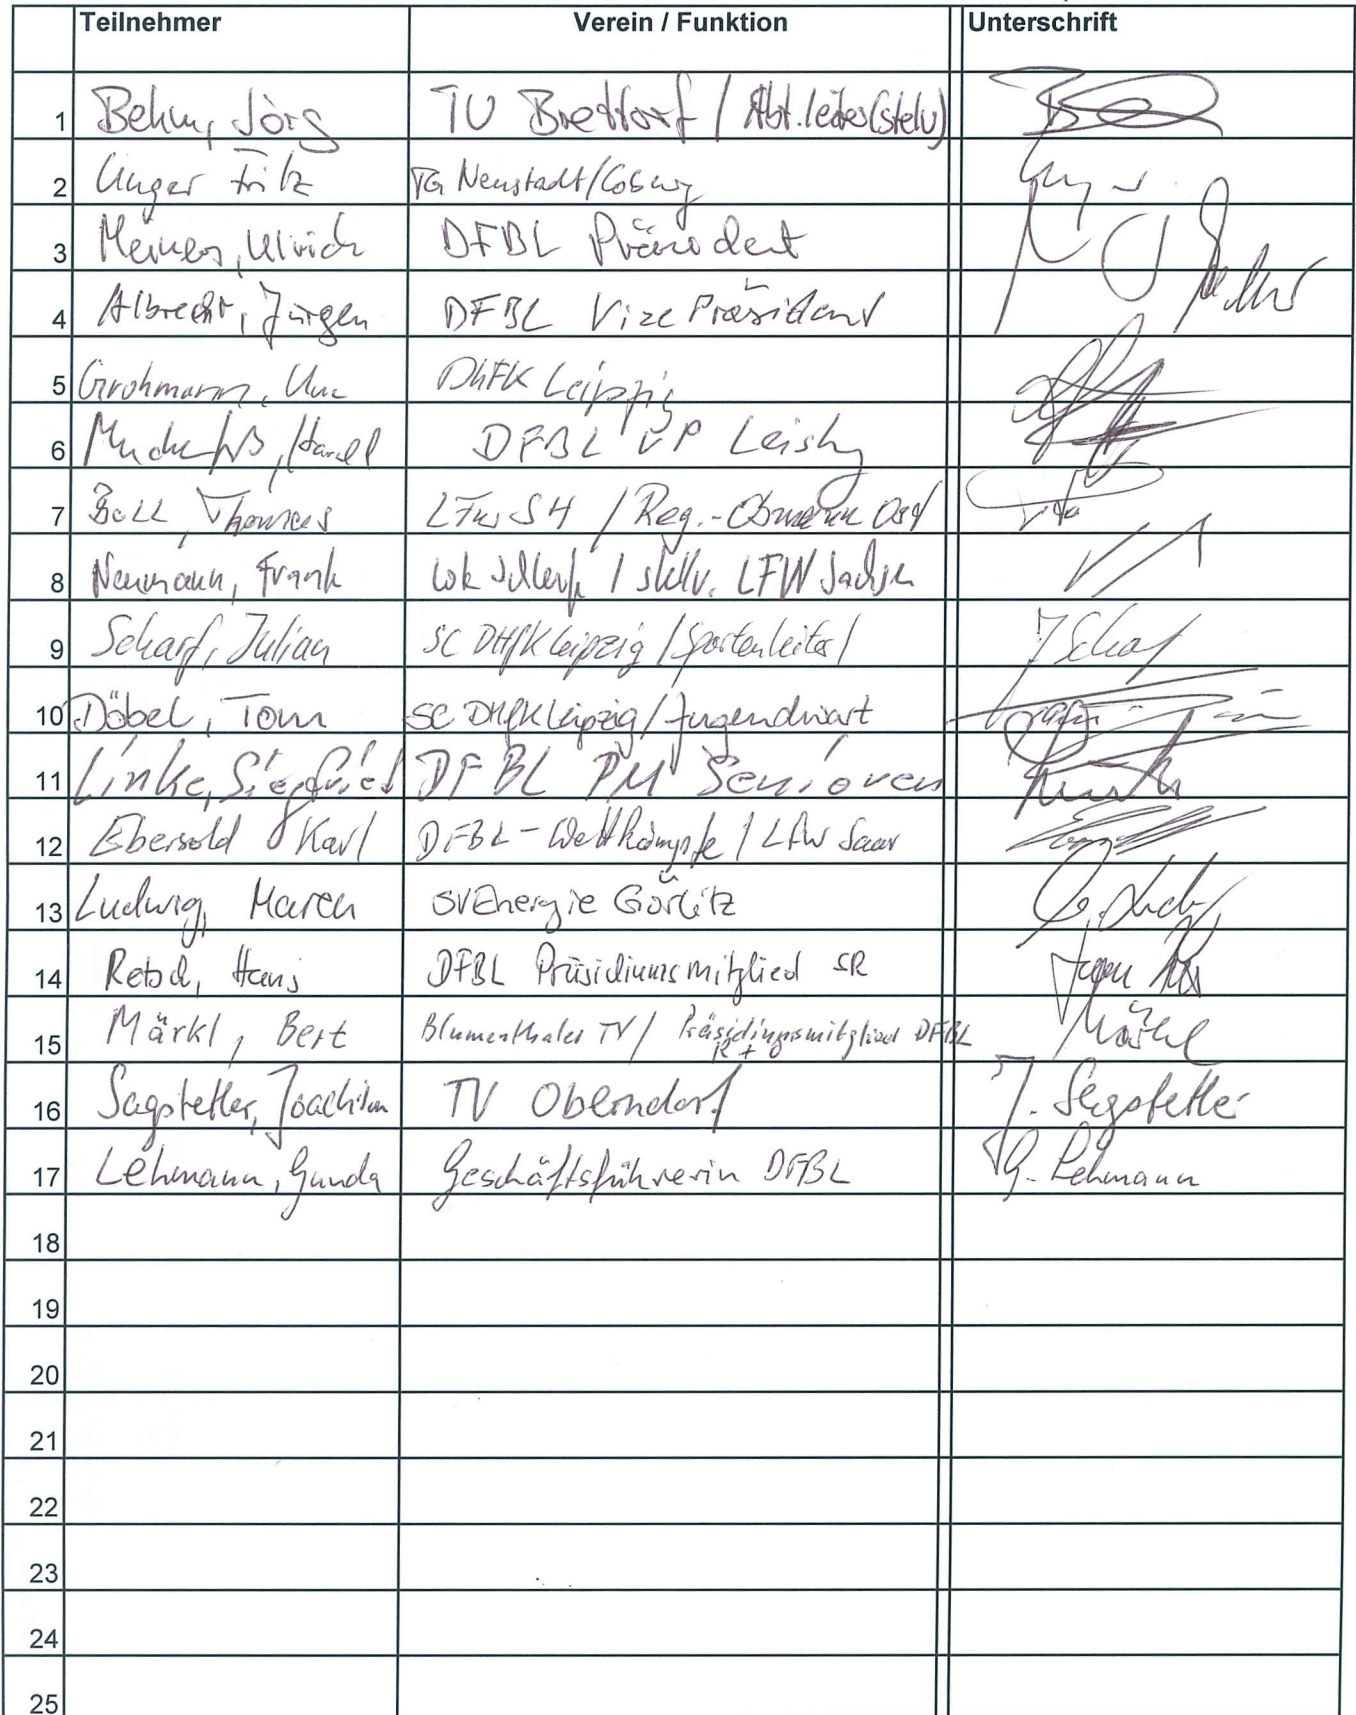 Teilnehmer Verein / Funktion Unterschrift
1 Behm, Jörg TV Brettorf / Abt.leiter(stelv)
2 Unger Fritz TG Neustadt/Coburg
3 Meiners, Ulrich DFBL Präsident
4 Albrecht, Jürgen DFBL Vize Präsident
5 Grohmann, Uwe DHFK Leipzig
6 DFBL VP
7 Boll, Thomas LFW SH / Reg.-Obmann Ost
8 Neumann, Frank Lok / stellv. LFW Sachsen
9 Scharf, Julian SC DHfK Leipzig / Spartenleiter / J Scharf
10 Döbel, Tom SC DHfK Leipzig / Jugendwart
11 Linke, Siegfried DFBL PM Senioren
12 Ebersold Karl DFBL - Wettkämpfe / LFW Saar
13 Ludwig, Maren SV Energie Görlitz
14 Retsch, Hans DFBL Präsidiumsmitglied SR
15 Märkl, Bert Blumenthaler TV / Präsidiumsmitglied DFBL Märkl
R + O
16 Sagstetter, Joachim TV Oberndorf J. Sagstetter
17 Lehmann, Gunda Geschäftsführerin DFBL G. Lehmann
18
19
20
21
22
23
24
25